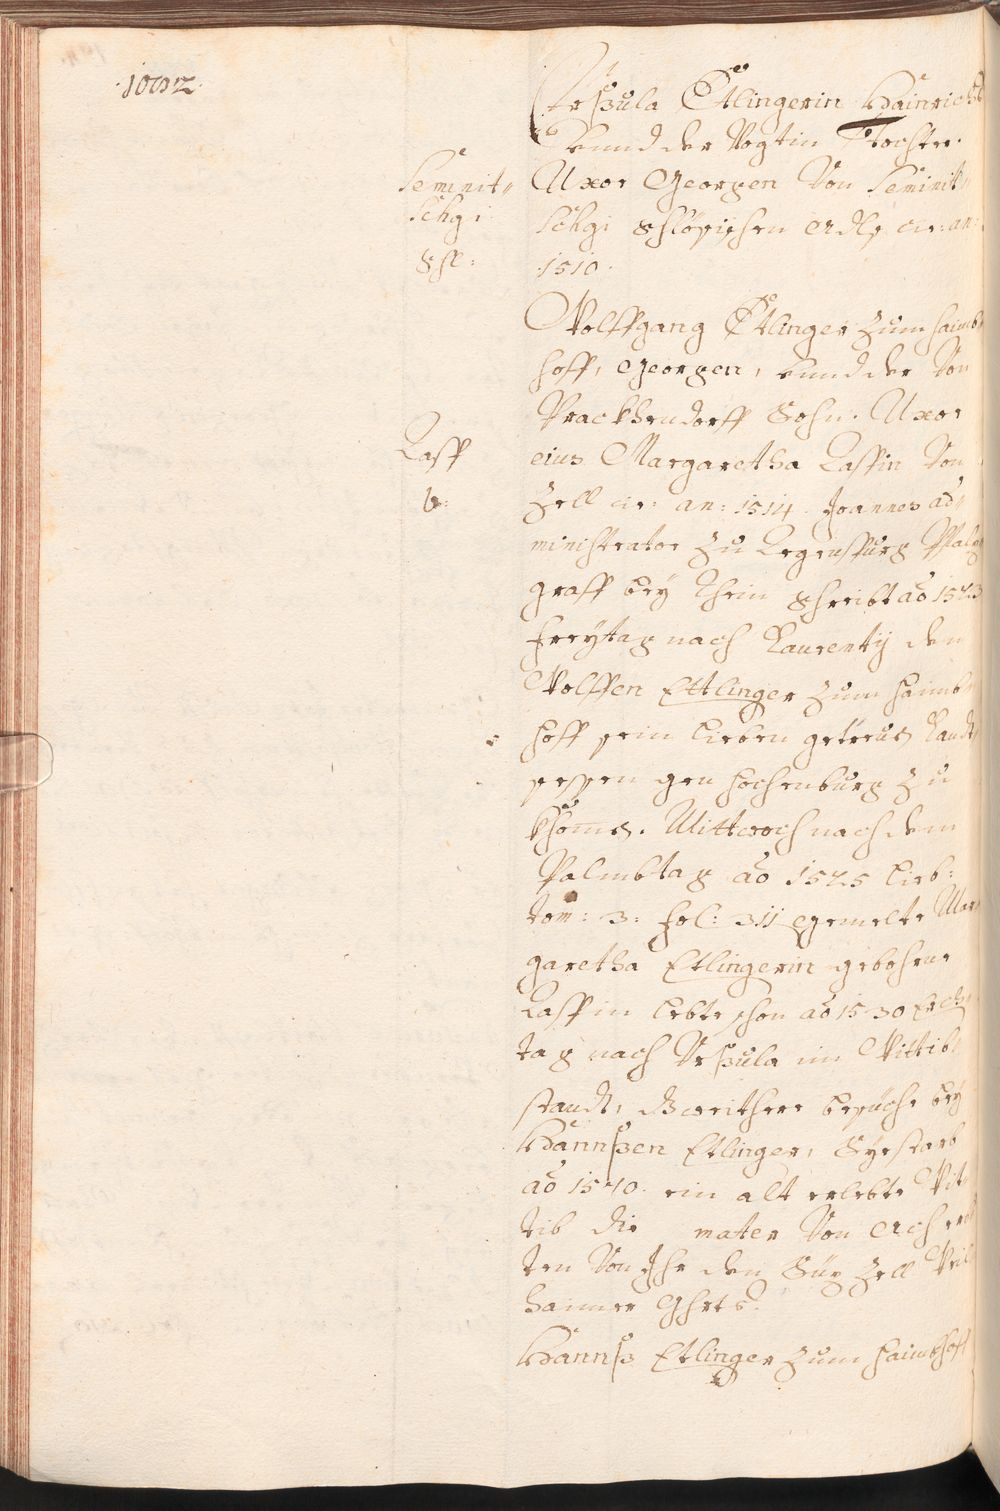 1092
Urßula Etlingerin Hainrichs
unnd der Vogtin Tochter.
Seminit=
Uxor Georgen Von Seminit=
schgi
schgi Schlösischen Adls cir: an:
Schl:
1510.
Wolffgang Etlinger zum haimb=
hoff, Georgen, unnd der Von
Prackhendorff Sohn. Uxor
Zasß
eius Margaretha Zassin Von
b:
Zell cir: an: 1514. Joannes ad=
ministrator zu Regenspurg Pfalz
graff bey Rhein schreibt ao 1523
Freytag nach Laurentij den
Wolffen Ettlinger zum haimb=
hoff sein lieben getreus Landt
sessen gen hochenburg zu
khomen. Mittwoch nach dem
Palmbtag ao 1525 Lieb:
tom: 3: fol: 311 Egemelte Mar=
garetha Etlingerin gebohrne
Zassin lebte schon ao 1530 Erch=
tag nach Urßula im Wittib=
standt, weithere besuche bey
Hannßen Etlinger, Sye starb
ao 1570. ein alt erlebte Wit=
tib die mater Von Ach erb
ten Von Ihr den Siz Zell Veil
haimer Ghrts.
Hannß Etlinger zum haimbhoff